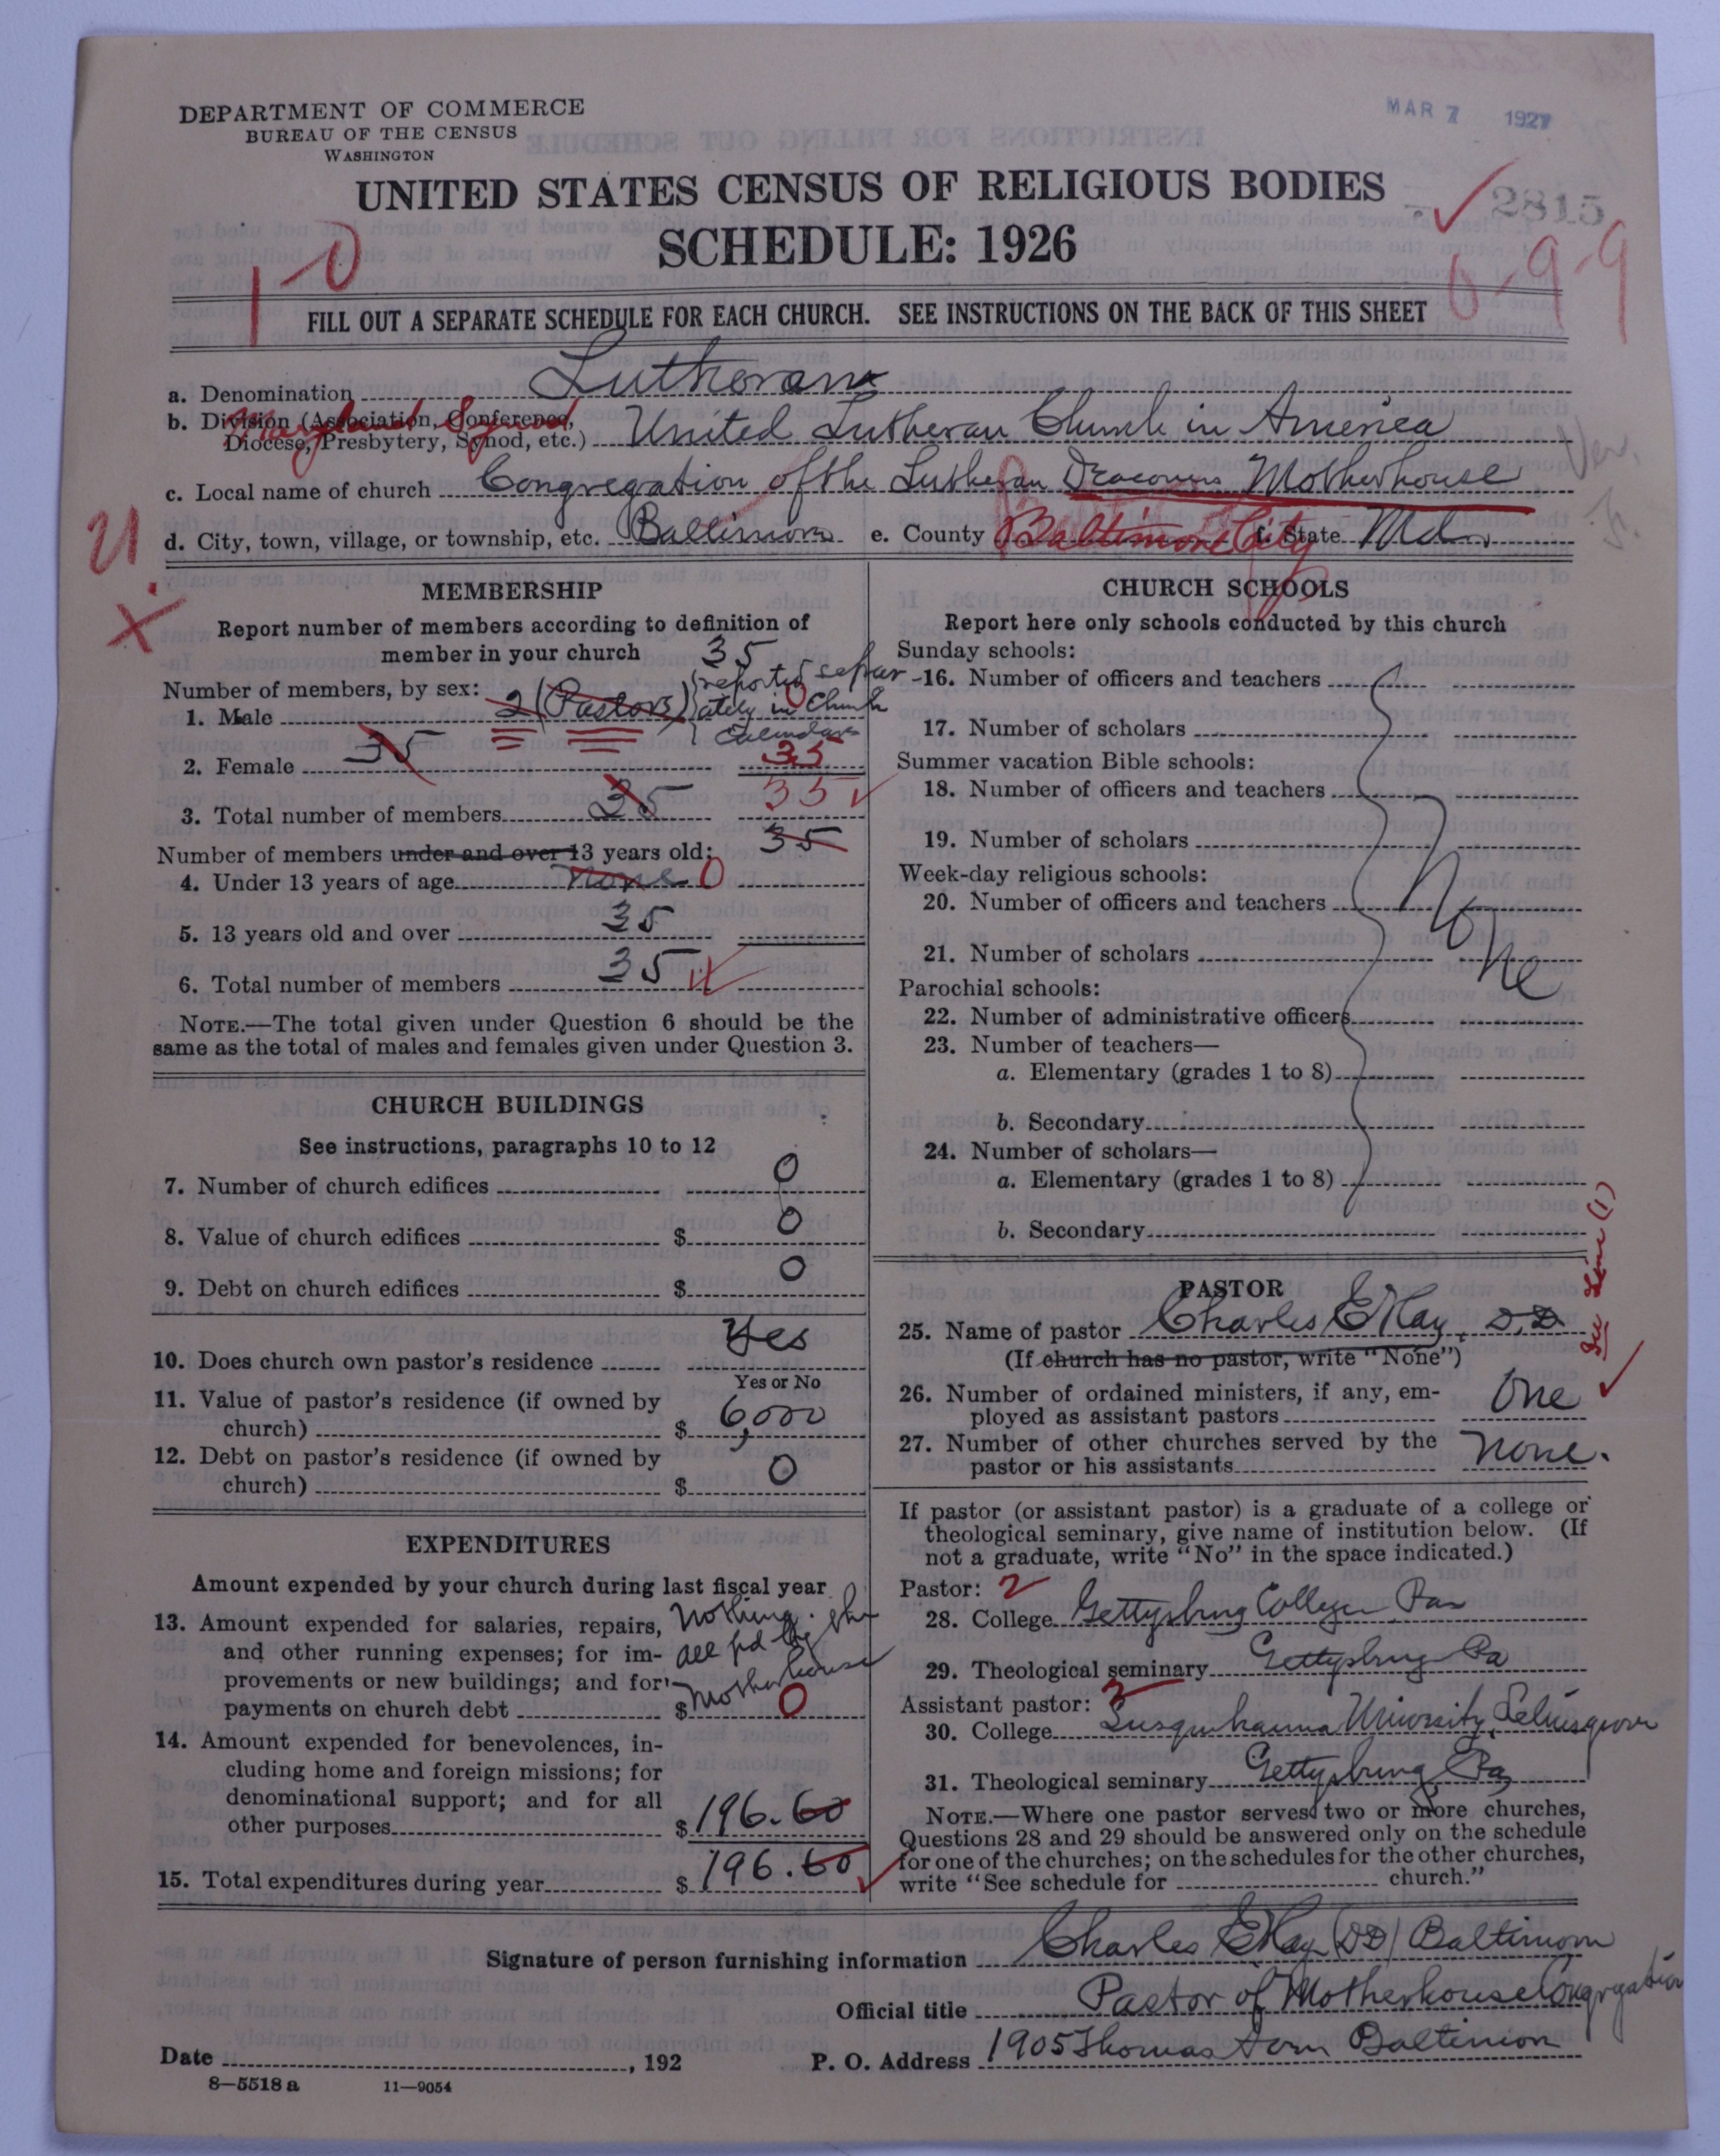 MAR 7 1927
DEPARTMENT OF COMMERCE
BUREAU OF THE CENSUS
WASHINGTON
UNITED STATES CENSUS OF RELIGIOUS BODIES
2815
SCHEDULE: 1926
1-0
6-9-9
FILL OUT A SEPARATE SCHEDULE FOR EACH CHURCH. SEE INSTRUCTIONS ON THE BACK OF THIS SHEET
a. Denomination Lutheran
Maryland Synod
b. Division (Association, Conference, Diocese, Presbytery, Synod, etc.) United Lutheran Church in America
c. Local name of church Congregation of the Lutheran Deaconess Motherhouse
d. City, town, village, or township, etc. Baltimore e. County Baltimore City f. State Md.
MEMBERSHIP
Report number of members according to definition of
member in your church 35
Number of members, by sex:
1. Male 2 (Pastors) reported separately in Church Calendars 0
2. Female 35 35
3. Total number of members 35 35
Number of members under and over 13 years old: 35
4. Under 13 years of age none 0
5. 13 years old and over 35
6. Total number of members 35
NOTE.—The total given under Question 6 should be the
same as the total of males and females given under Question 3.
CHURCH BUILDINGS
See instructions, paragraphs 10 to 12
7. Number of church edifices 0
8. Value of church edifices $ 0
9. Debt on church edifices $ 0
10. Does church own pastor's residence Yes
Yes or No
11. Value of pastor's residence (if owned by
church) $ 6,000
12. Debt on pastor's residence (if owned by
church) $ 0
EXPENDITURES
Amount expended by your church during last fiscal year
13. Amount expended for salaries, repairs, Nothing. the
and other running expenses; for im- all pd by
provements or new buildings; and for
payments on church debt $ Motherhouse 0
14. Amount expended for benevolences, in-
cluding home and foreign missions; for
denominational support; and for all
other purposes $ 196.60
15. Total expenditures during year $ 196.60
CHURCH SCHOOLS
Report here only schools conducted by this church
Sunday schools:
16. Number of officers and teachers
17. Number of scholars
Summer vacation Bible schools:
18. Number of officers and teachers
19. Number of scholars
Week-day religious schools:
20. Number of officers and teachers
None
21. Number of scholars
Parochial schools:
22. Number of administrative officers
23. Number of teachers—
a. Elementary (grades 1 to 8)
b. Secondary
24. Number of scholars—
a. Elementary (grades 1 to 8)
b. Secondary
See Line (1)
PASTOR
25. Name of pastor Charles E Hay, D.D.
(If church has no pastor, write "None")
26. Number of ordained ministers, if any, em-
ployed as assistant pastors One
27. Number of other churches served by the
pastor or his assistants None.
If pastor (or assistant pastor) is a graduate of a college or
theological seminary, give name of institution below. (If
not a graduate, write "No" in the space indicated.)
Pastor: 2
28. College Gettysburg College Pa
29. Theological seminary Gettysburg Pa
Assistant pastor: 2
30. College Susquehanna University, Selinsgrove
31. Theological seminary Gettysburg Pa
NOTE.—Where one pastor serves two or more churches,
Questions 28 and 29 should be answered only on the schedule
for one of the churches; on the schedules for the other churches,
write "See schedule for church."
Signature of person furnishing information Charles E Hay (DD) Baltimore
Official title Pastor of Motherhouse Congregation
Date , 192 P. O. Address 1905 Thomas Baltimore
8—5518 a 11—9054